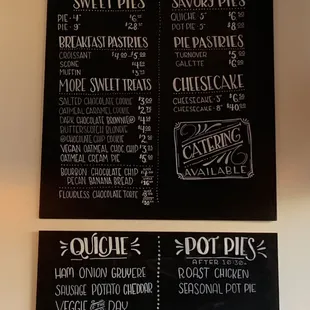 SWEET PIES
PIE - 4"
PIE - 9" $28
BREAKFAST PASTRIES
CROISSANT $4.00-$5.00
SCONE $4
MUFFIN
MORE SWEET TREATS
SALTED CHOCOLATE COOKIE
OATMEAL CARAMEL COOKIE
DARK CHOCOLATE BROWNIE
BUTTERSCOTCH BLONDIE
CHOCOLATE CHIP COOKIE
VEGAN OATMEAL CHOC CHIP
OATMEAL CREAM PIE
BOURBON CHOCOLATE CHIP
PECAN BANANA BREAD
FLOURLESS CHOCOLATE TORTE
SAVORY PIES
QUICHE - 5" $6
POT PIE - 5" $8
PIE PASTRIES
TURNOVER $5
GALETTE $6
CHEESECAKE
CHEESECAKE - 5" $6
CHEESECAKE - 8" $40
CATERING
AVAILABLE
QUICHE
HAM ONION GRUYERE
SAUSAGE POTATO CHEDDAR
VEGGIE OF THE DAY
POT PIES
AFTER 10:30
ROAST CHICKEN
SEASONAL POT PIE